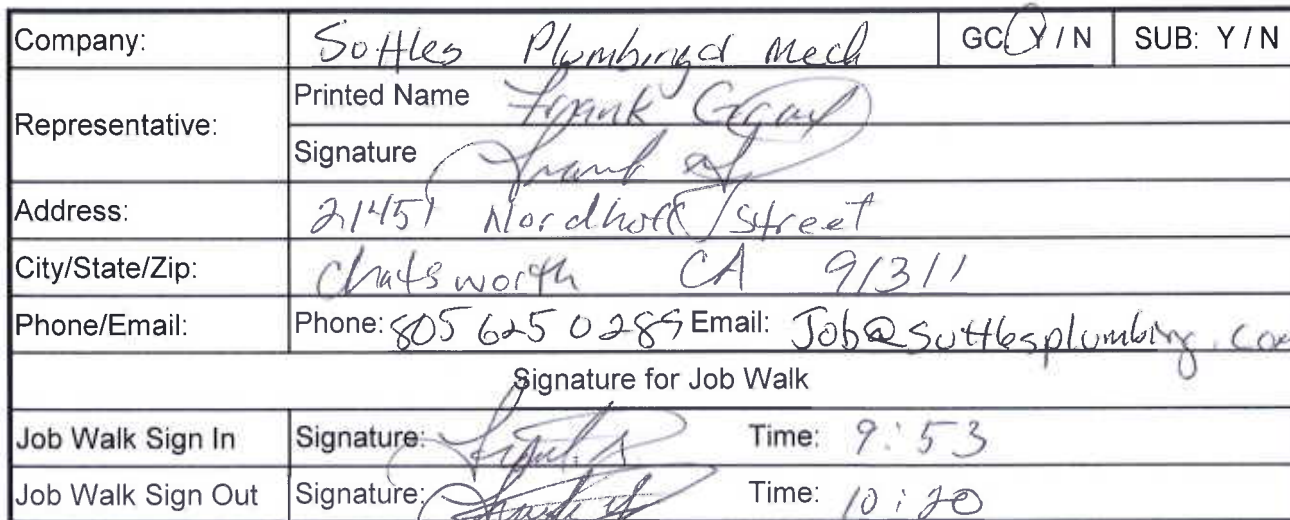 Company: Suttles Plumbing & Mech GC: Y / N SUB: Y / N
Representative: Printed Name Frank
Signature
Address: 21451 Nordhoff Street
City/State/Zip: Chatsworth CA 91311
Phone/Email: Phone: 805 625 0289 Email: Job@suttlesplumbing.com
Signature for Job Walk
Job Walk Sign In Signature: Time: 9:53
Job Walk Sign Out Signature: Time: 10:20